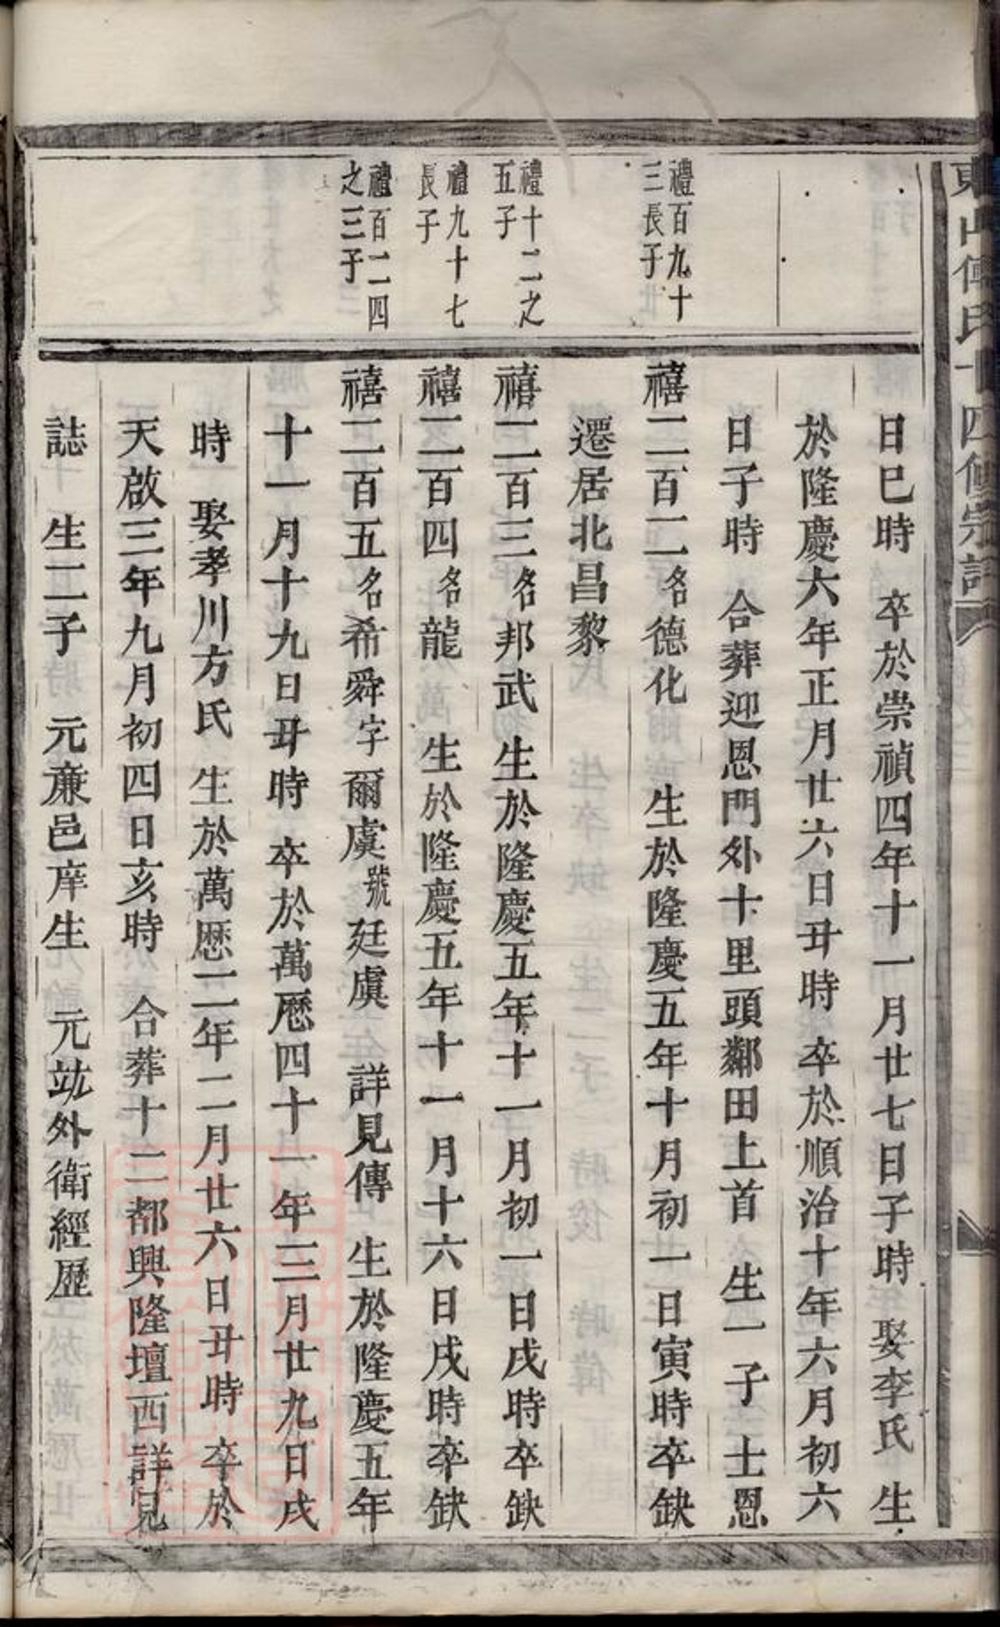 日巳時　卒於崇禎四年十一月廿七日子時娶李氏　生
於隆慶六年正月廿六日丑時　卒於順治十年六月初六
日子時　合葬迎恩門外十里頭鄰田上首　生一子　士恩
禮百九十
三長子
禧二百二名德化　生於隆慶五年十月初一日寅時卒缺
遷居北昌黎
禮十二之
五子
禧二百三名邦武　生於隆慶五年十一月初一日戌時卒缺
禮九十七
長子
禧二百四名龍　生於隆慶五年十一月十六日戌時卒缺
禮百二四
之三子
禧二百五名希舜字爾虞號廷虞　詳見傳　生於隆慶五年
十一月十九日丑時　卒於萬曆四十一年三月廿九日戌
時　娶孝川方氏　生於萬曆二年二月廿六日丑時　卒於
天啟三年九月初四日亥時　合葬十二都興隆壇西詳見
誌　生二子　元亷邑庠生　元竑外衛經歷